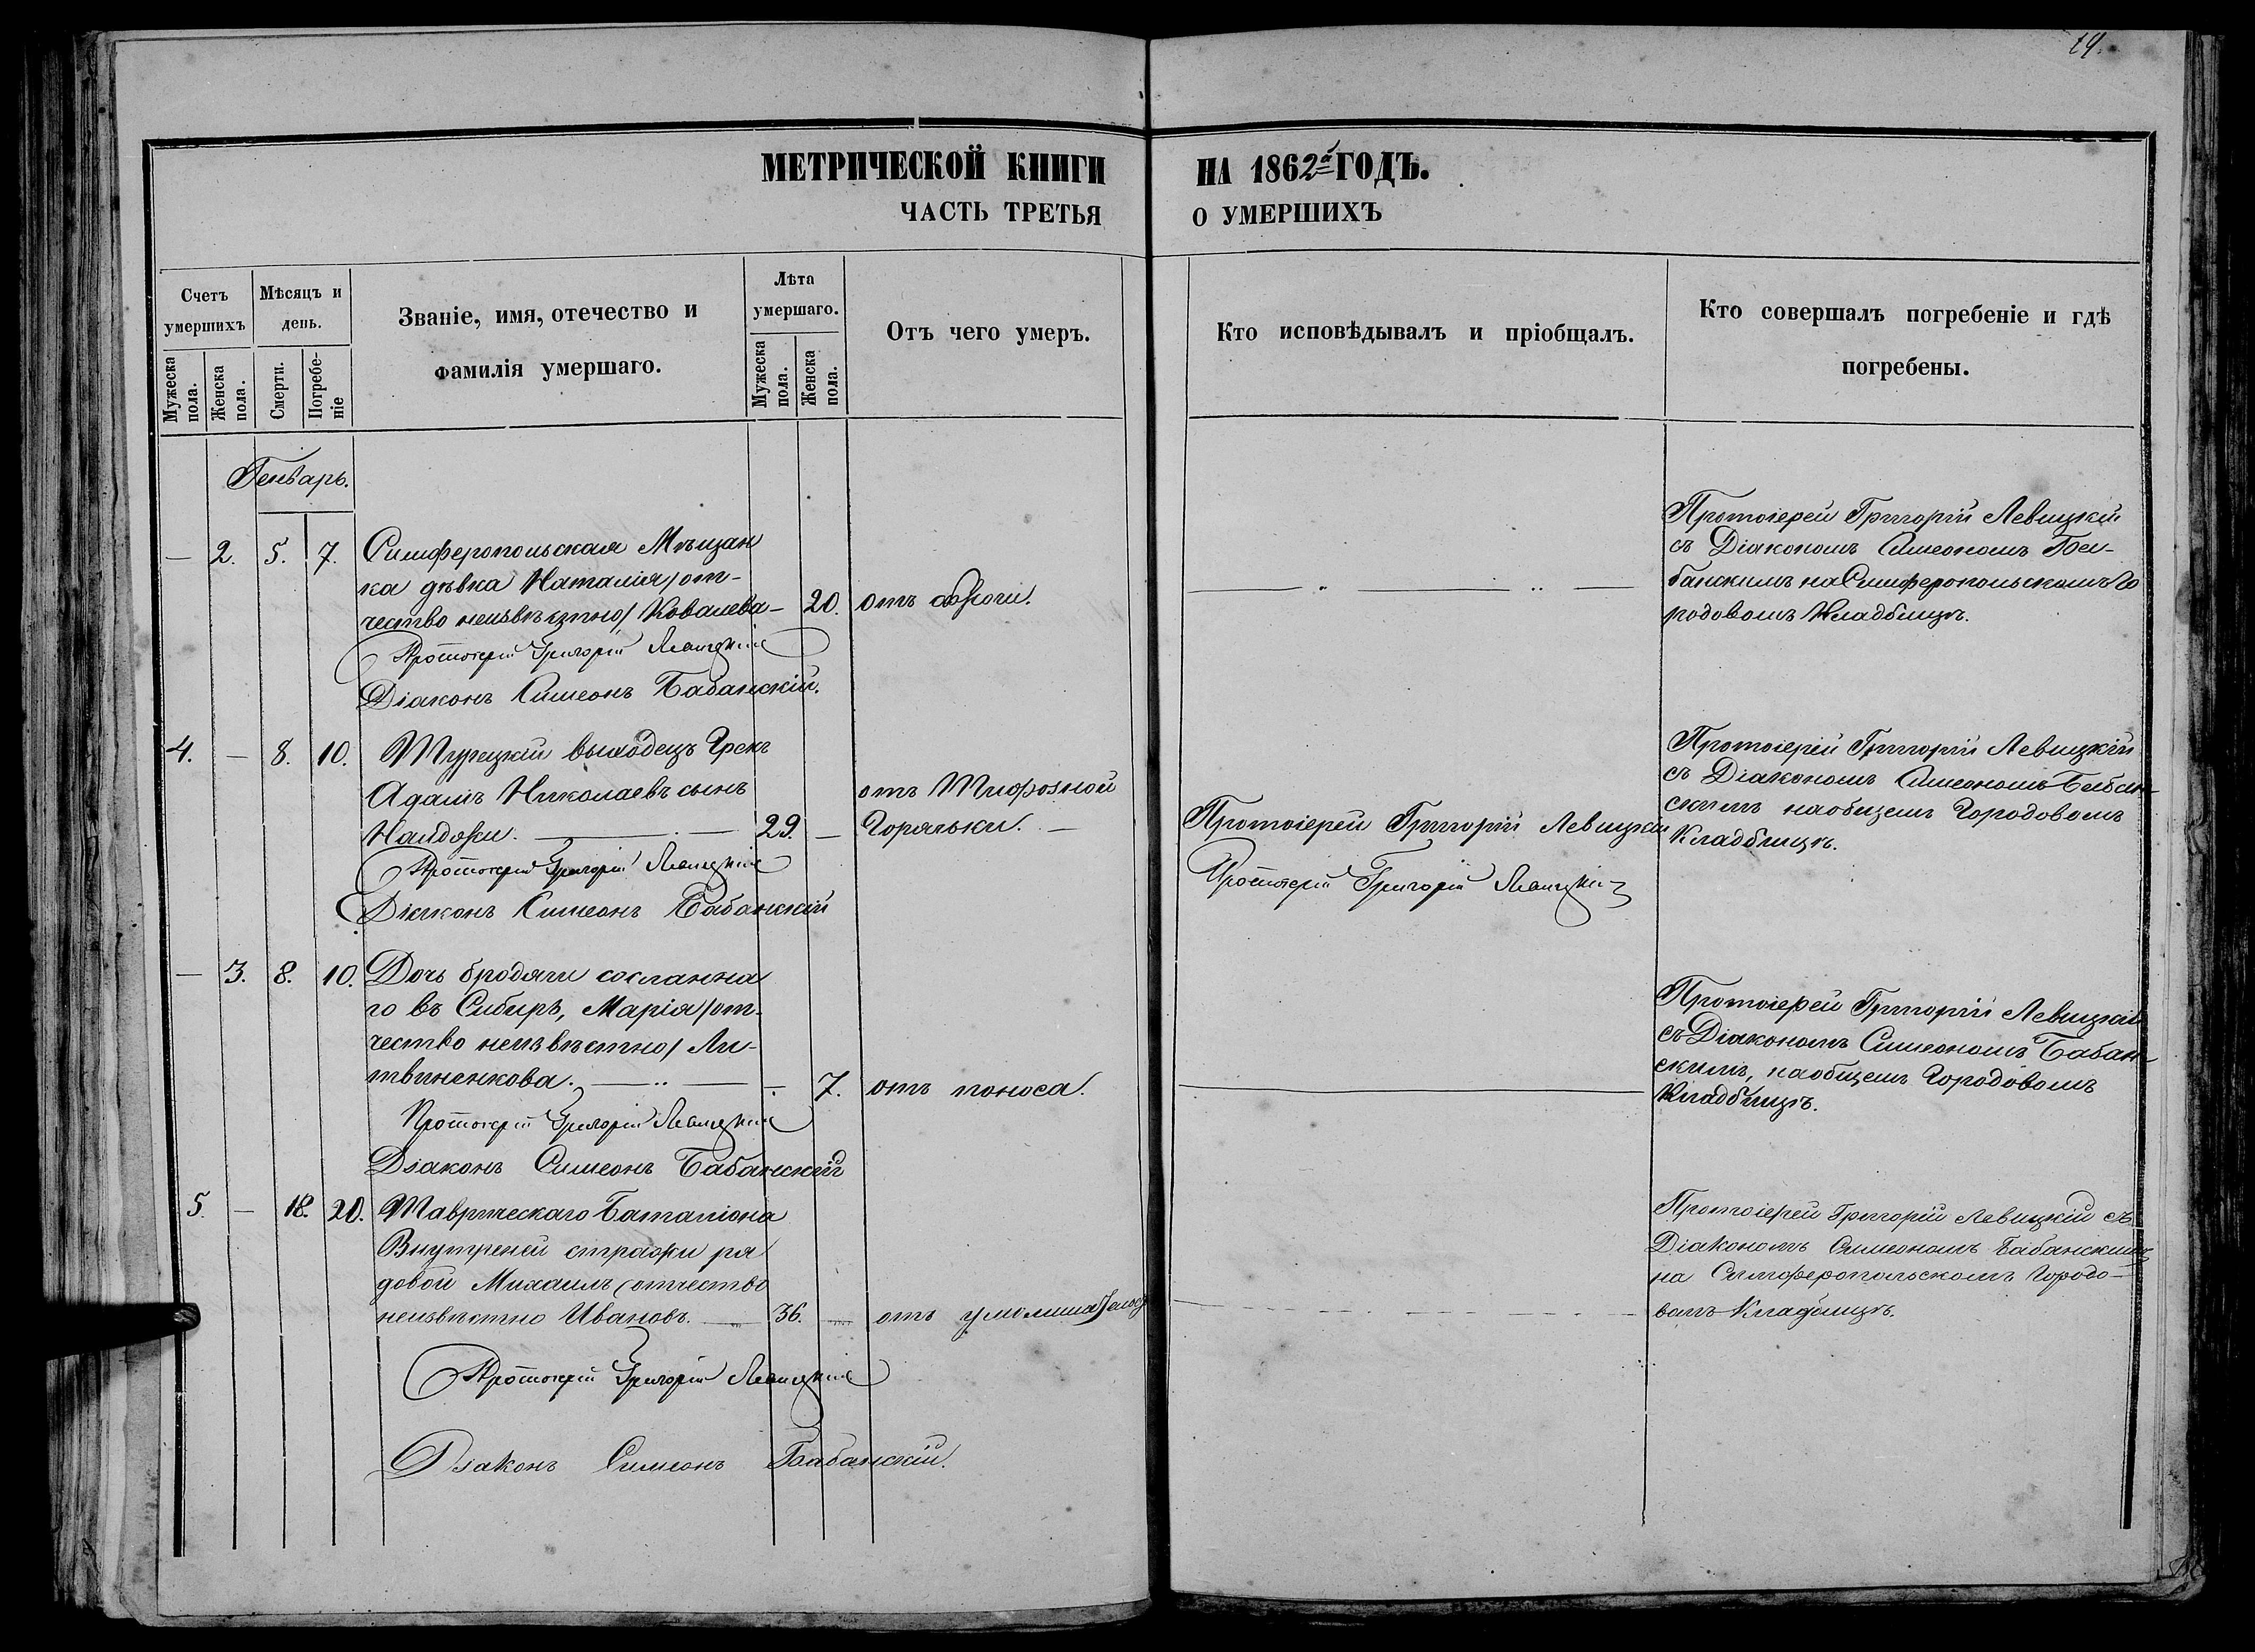 19.
МЕТРИЧЕСКОЙ КНИГИ НА 1862й ГОДЪ.
ЧАСТЬ ТРЕТЬЯ О УМЕРШИХЪ
Счетъ умершихъ
Мужеска пола.
Женска пола.
Мѣсяцъ и день.
Смерти.
Погребе-
ніе
Званіе, имя, отечество и
фамилія умершаго.
Лѣта умершаго.
Мужеска пола.
Женска пола.
Отъ чего умеръ.
Кто исповѣдывалъ и пріобщалъ.
Кто совершалъ погребеніе и гдѣ
погребены.
Генварь.
— 2. 5. 7. Симферопольская Мѣщан
ка дѣвка Наталія /от-
чество неизвѣстно/ Ковалева — 20. отъ
Протоіерей Григорій Левицкій
Діаконъ Симеонъ Бабанскій.
Протоіерей Григорій Левицкій
съ Діакономъ Симеономъ Ба-
банскимъ на Симферопольскомъ Го
родовомъ Кладбищѣ.
4. — 8. 10. Турецкій выходецъ Грекъ
Адамъ Николаевъ сынъ
29. —
отъ Тифозной
Горячки. —
Протоіерей Григорій Левицкій
Діаконъ Симеонъ Бабанскій
Протоіерей Григорій Левицкій
Протоіерей Григорій Левицкій
Протоіерей Григорій Левицкій
съ Діакономъ Симеономъ Бабан-
скимъ на общемъ Городовомъ
Кладбищѣ.
— 3. 8. 10. Дочь бродяги сосланна
го въ Сибирь, Марія /от-
чество неизвѣстно/ Ли-
твиненкова. — 7. отъ поноса.
Протоіерей Григорій Левицкій
Діаконъ Симеонъ Бабанскій
Протоіерей Григорій Левицкій
съ Діакономъ Симеономъ Бабан-
скимъ, на общемъ Городовомъ
Кладбищѣ.
5. — 18. 20. Таврическаго Баталіона
Внутреней стражи ря
довой Михаилъ (отчество
неизвѣстно Ивановъ. — 36. — отъ
Протоіерей Григорій Левицкій
Діаконъ Симеонъ Бабанскій.
Протоіерей Григорій Левицкій съ
Діакономъ Симеономъ Бабанскимъ
на Симферопольскомъ Городо-
вомъ Кладбищѣ.